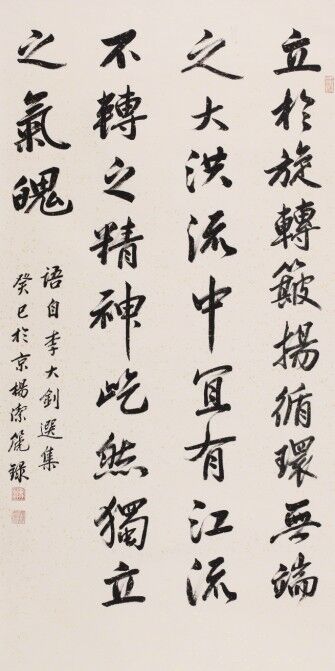 立於旋轉簸揚循環無端
之大洪流中宜有江流
不轉之精神屹然獨立
之氣魄
語自李大釗選集
癸巳於京楊錄